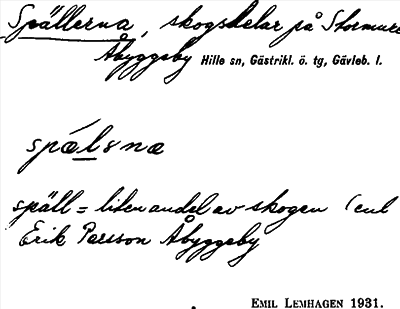 Spällerna, skogsdelar på Stormuren
Åbyggeby Hille sn, Gästrikl. ö. tg, Gävleb. l.
spælsnæ
späll = liten andel av skogen (enl
Erik Persson Åbyggeby
EMIL LEMHAGEN 1931.